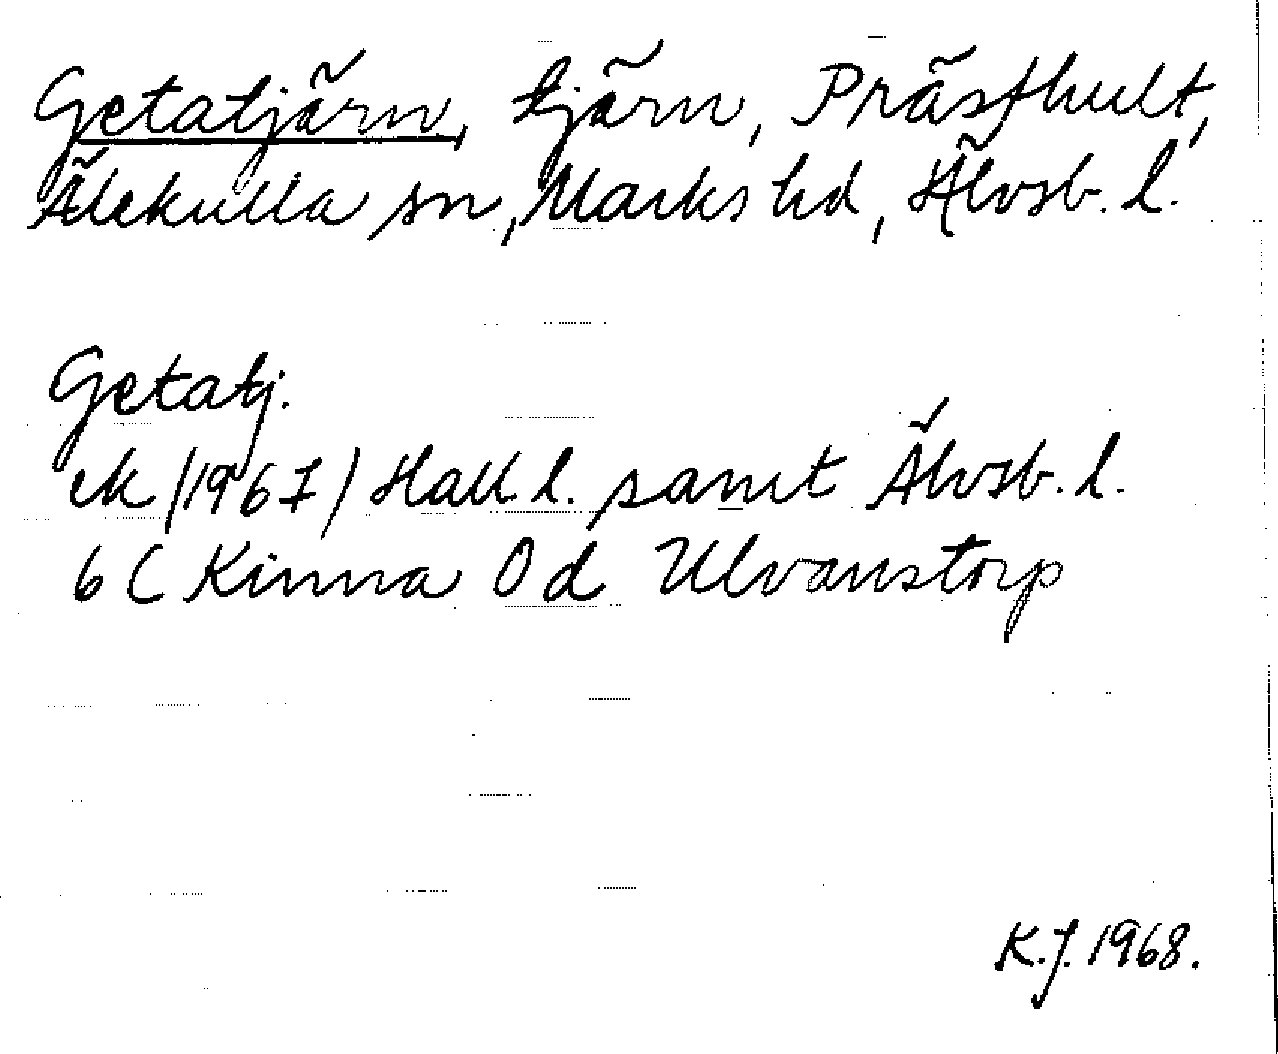 Getatjärn, tjärn, Prästhult,
Älekulla sn, Marks hd, Älvsb. l.
Getatj.
ek (1967) Hall. l. samt Älvsb. l.
6 C Kinna 0 d Ulvanstorp
K.J. 1968.